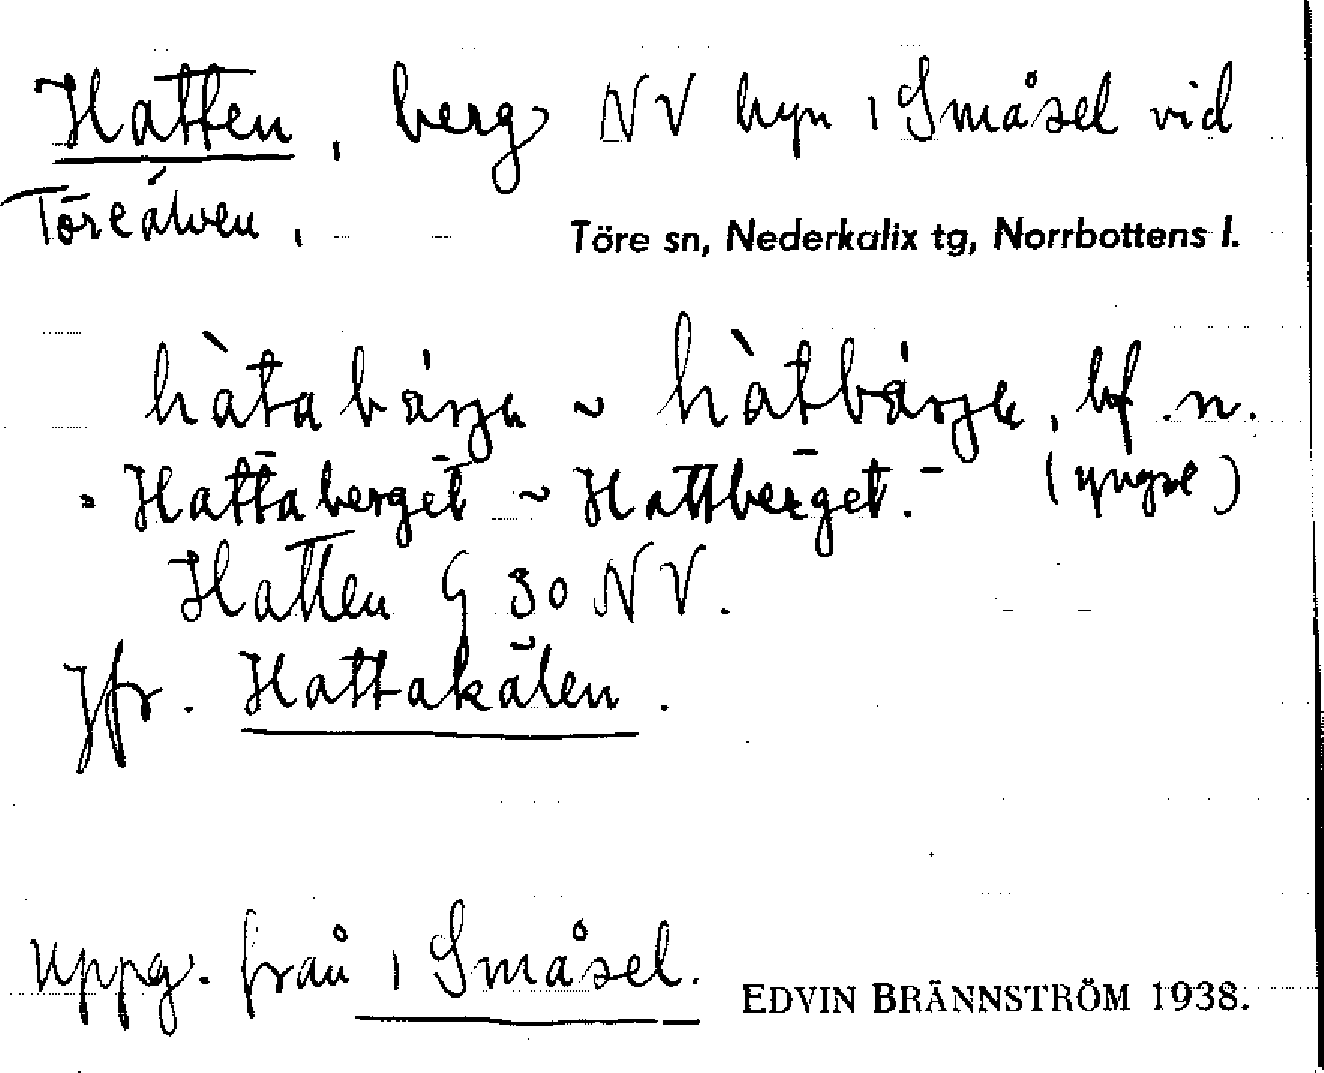 Hatten, berg NV byn 1 Småsel vid
Töreälven.
Töre sn, Nederkalix tg, Norrbottens l.
hàtabárje ~ hàtbárje, bf. n.
= Hattaberget ~ Hattberget. - (yngre)
Hatten G 30 NV.
Jfr. Hattakälen.
Uppg. från 1 Småsel.
EDVIN BRÄNNSTRÖM 1938.